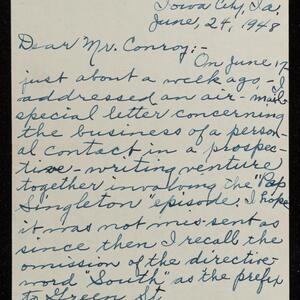 Iowa City, Ia.
June, 24, 1948
Dear Mr. Conroy:-
On June 17
just about a week ago, I
addressed an air-mail
special letter concerning
the business of a person-
al contact in a prospec-
tive-writing venture
together involving the "Pap
Singleton" episode. I hope
it was not mis-sent as
since then I recall the
omission of the directive
word "South" as the prefix
to Green St.